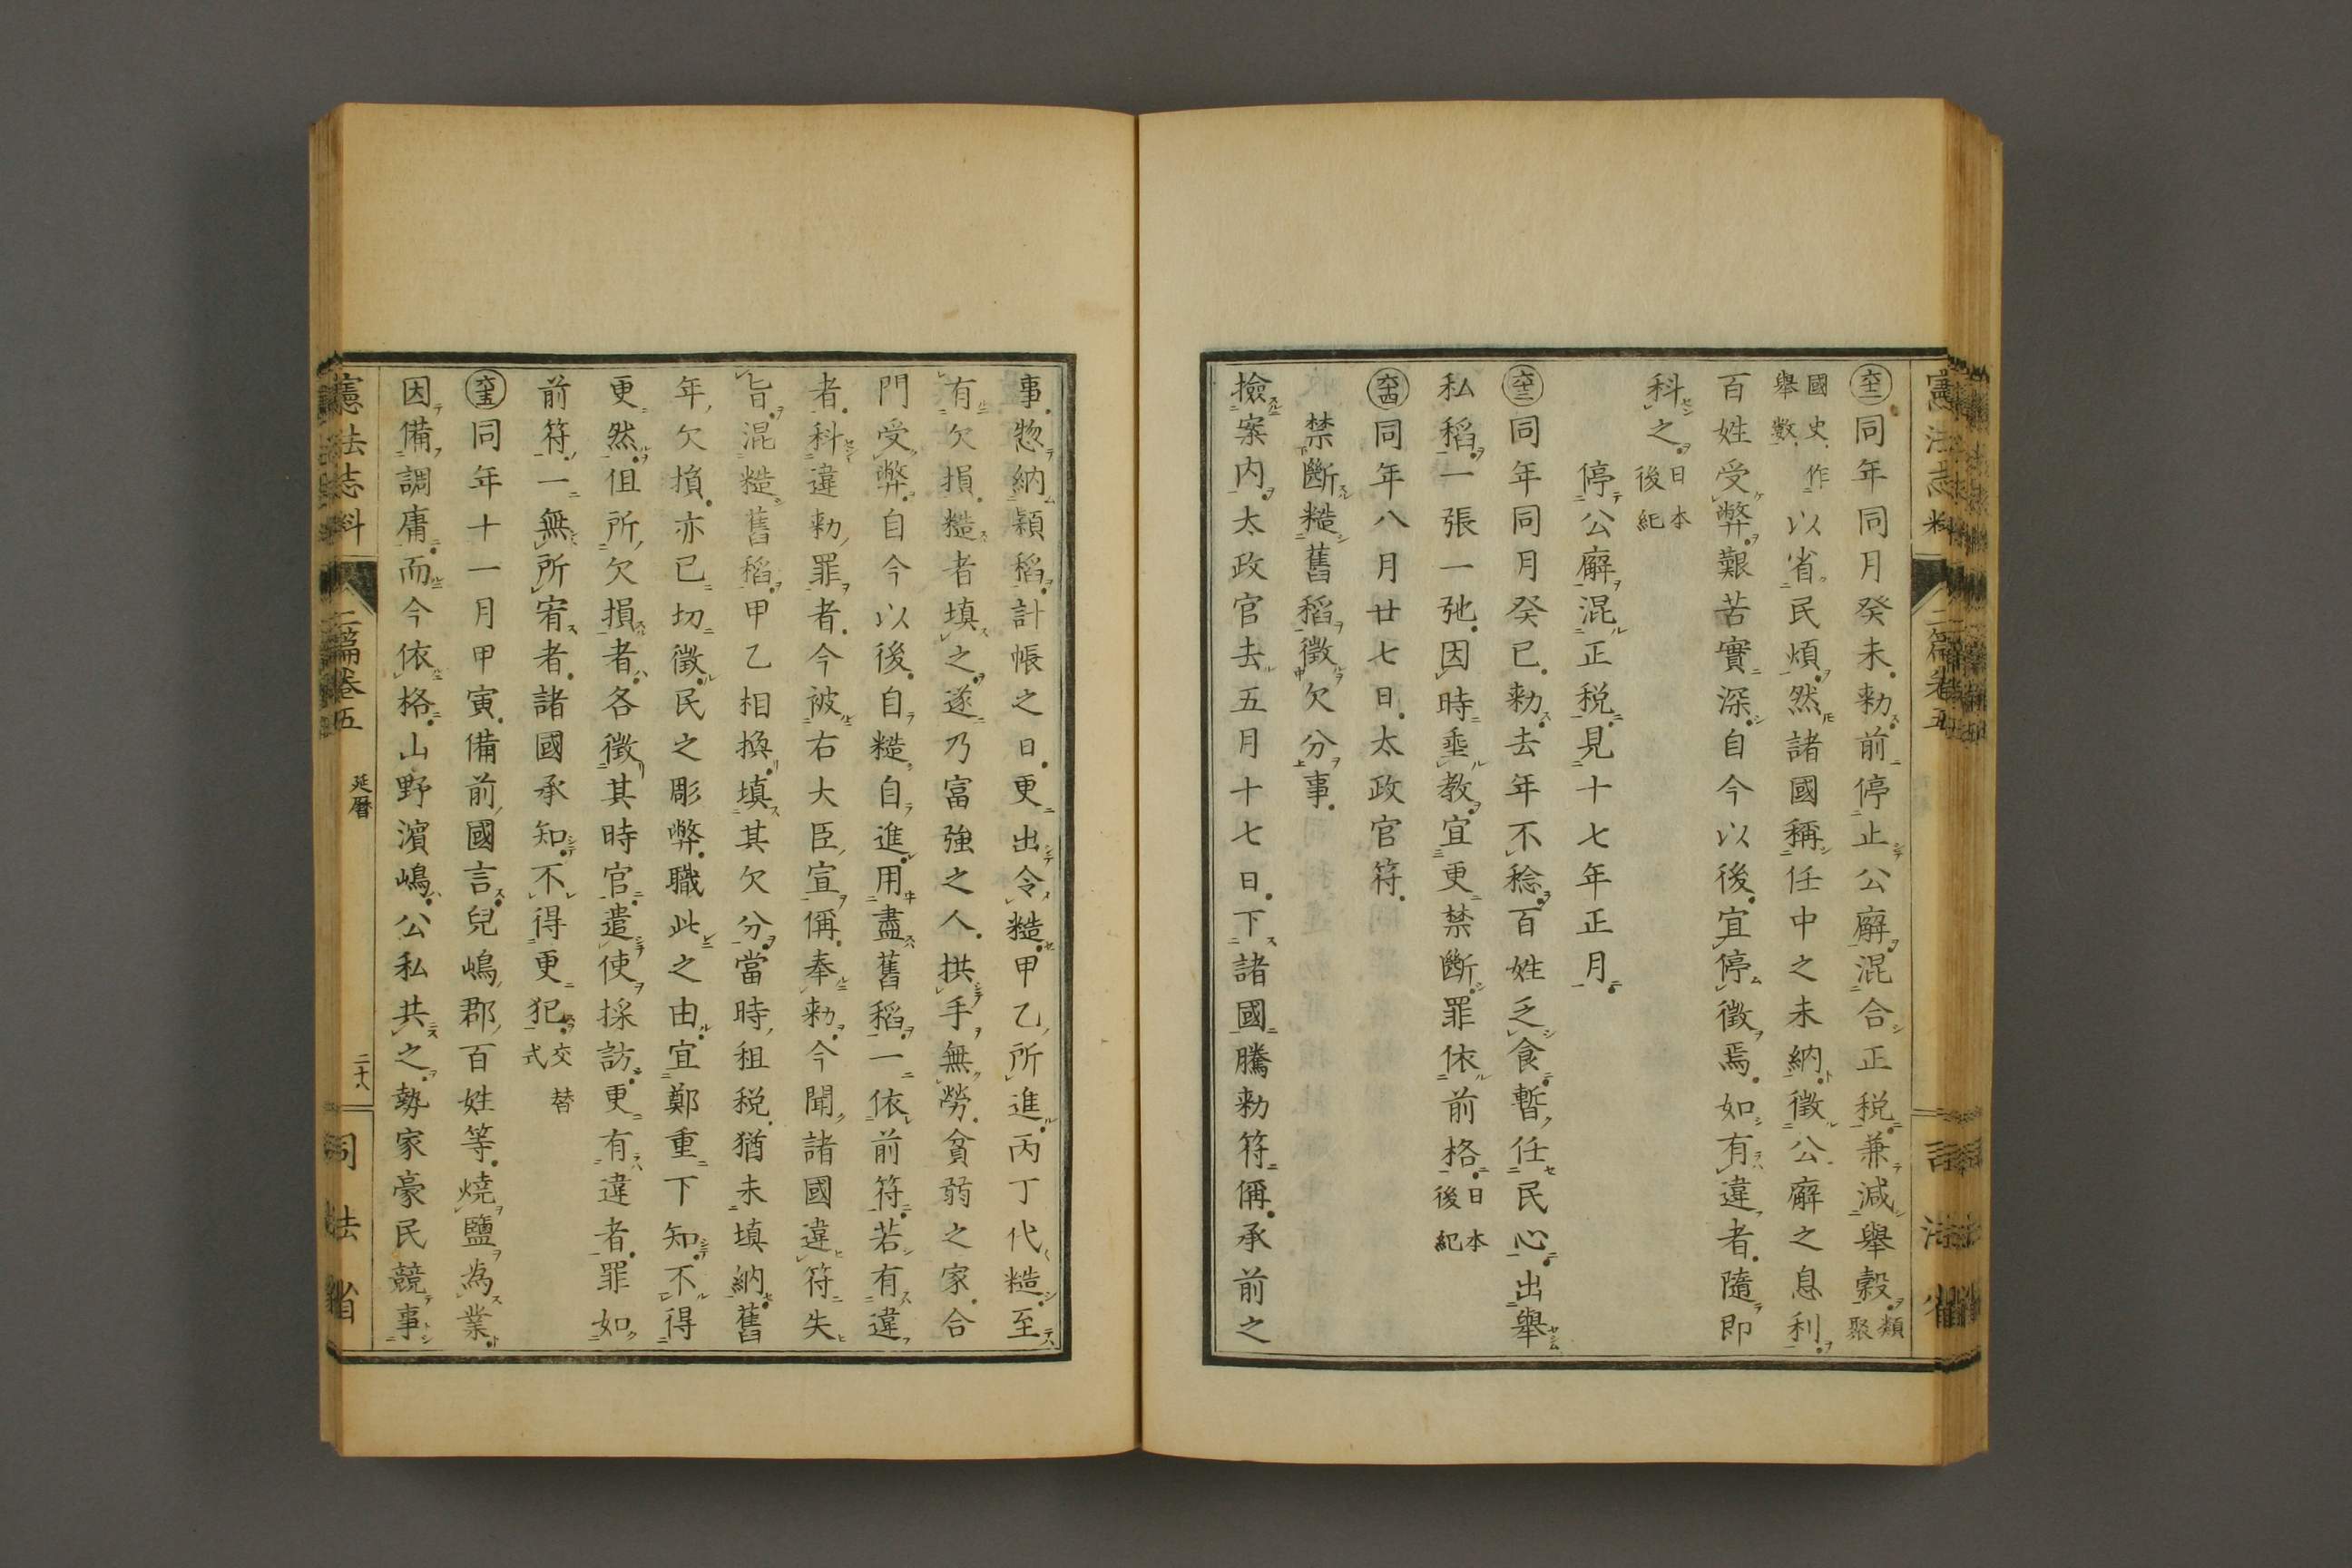 憲法志料 二篇卷五
㊅㊁同年同月癸未勅前停止公廨混合正税兼減擧穀類聚
國史作擧數以省民煩然諸國稱任中之未納徵公廨之息利
百姓受弊艱苦實深自今以後宜停徵焉如有違者隨即
科之日本後紀
停公廨混正税見十七年正月
六十三同年同月癸巳勅去年不稔百姓乏食暫任民心出擧
私稻一張一弛因時垂教宜更禁斷罪依前格日本後紀
六十四同年八月廿七日太政官符
禁斷糙舊稻徵欠分事
撿案内太政官去五月十七日下諸國騰勅符偁承前之
事惣納穎稻計帳之日更出令糙甲乙所進丙丁代糙至
有欠損糙者填之遂乃富強之人拱手無勞貧弱之家合
門受弊自今以後自糙自進用盡舊稻一依前符若有違
者科違勅罪者今被右大臣宣偁奉勅今聞諸國違符失
旨混糙舊稻甲乙相換填其欠分當時租税猶未填納舊
年欠損亦已切徵民之彫弊職此之由宜鄭重下知不得
更然但所欠損者各徵其時官遣使採訪更有違者罪如
前符一無所宥者諸國承知不得更犯交替式
六十五同年十一月甲寅備前國言兒嶋郡百姓等燒鹽為業
因備調庸而今依格山野濵嶋公私共之勢家豪民競事
憲法志料 二篇卷五 延暦 二十八 司法省